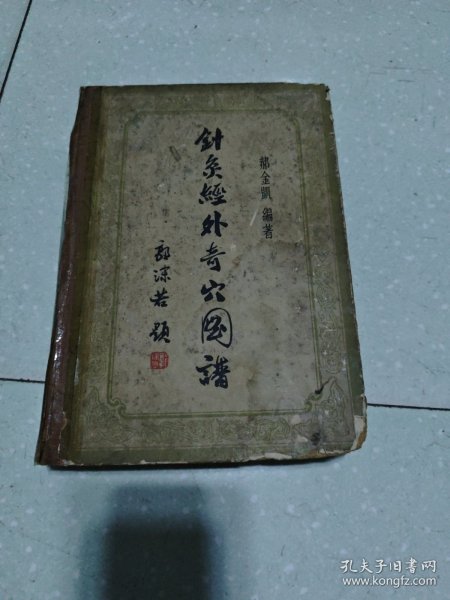 郝金凱 編著
針灸經外奇穴图譜
郭沫若題
孔夫子旧书网
www.kongfz.com